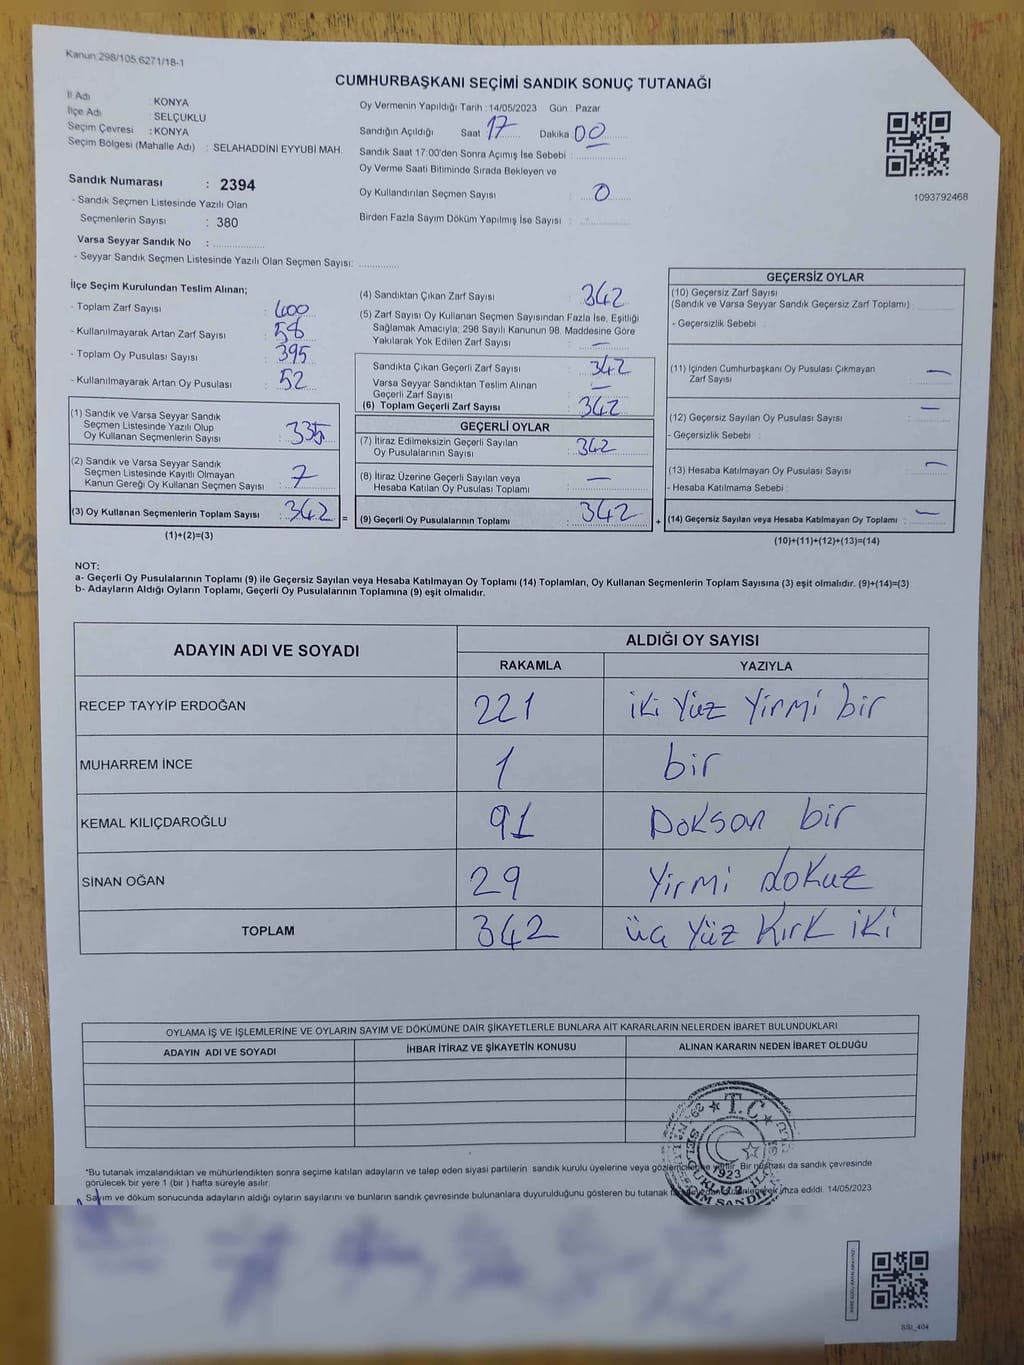 Kanun:298/105,6271/18-1
CUMHURBAŞKANI SEÇİMİ SANDIK SONUÇ TUTANAĞI
İl Adı : KONYA
İlçe Adı : SELÇUKLU
Seçim Çevresi : KONYA
Seçim Bölgesi (Mahalle Adı) : SELAHADDİNİ EYYUBİ MAH.
Sandık Numarası : 2394
- Sandık Seçmen Listesinde Yazılı Olan
Seçmenlerin Sayısı : 380
Varsa Seyyar Sandık No :
- Seyyar Sandık Seçmen Listesinde Yazılı Olan Seçmen Sayısı:
Oy Vermenin Yapıldığı Tarih : 14/05/2023 Gün : Pazar
Sandığın Açıldığı Saat 17 Dakika 00
Sandık Saat 17:00'den Sonra Açımış İse Sebebi :
Oy Verme Saati Bitiminde Sırada Bekleyen ve
Oy Kullandırılan Seçmen Sayısı : 0
Birden Fazla Sayım Döküm Yapılmış İse Sayısı :
1093792468
İlçe Seçim Kurulundan Teslim Alınan;
- Toplam Zarf Sayısı : 400
- Kullanılmayarak Artan Zarf Sayısı : 58
- Toplam Oy Pusulası Sayısı : 395
- Kullanılmayarak Artan Oy Pusulası : 52
(1) Sandık ve Varsa Seyyar Sandık
Seçmen Listesinde Yazılı Olup
Oy Kullanan Seçmenlerin Sayısı : 335
(2) Sandık ve Varsa Seyyar Sandık
Seçmen Listesinde Kayıtlı Olmayan
Kanun Gereği Oy Kullanan Seçmen Sayısı : 7
(3) Oy Kullanan Seçmenlerin Toplam Sayısı : 342 =
(1)+(2)=(3)
(4) Sandıktan Çıkan Zarf Sayısı : 342
(5) Zarf Sayısı Oy Kullanan Seçmen Sayısından Fazla İse, Eşitliği
Sağlamak Amacıyla; 298 Sayılı Kanunun 98. Maddesine Göre
Yakılarak Yok Edilen Zarf Sayısı : —
Sandıkta Çıkan Geçerli Zarf Sayısı : 342
Varsa Seyyar Sandıktan Teslim Alınan
Geçerli Zarf Sayısı : —
(6) Toplam Geçerli Zarf Sayısı : 342
GEÇERLİ OYLAR
(7) İtiraz Edilmeksizin Geçerli Sayılan
Oy Pusulalarının Sayısı : 342
(8) İtiraz Üzerine Geçerli Sayılan veya
Hesaba Katılan Oy Pusulası Toplamı : —
(9) Geçerli Oy Pusulalarının Toplamı : 342 +
GEÇERSİZ OYLAR
(10) Geçersiz Zarf Sayısı
(Sandık ve Varsa Seyyar Sandık Geçersiz Zarf Toplamı) :
- Geçersizlik Sebebi :
(11) İçinden Cumhurbaşkanı Oy Pusulası Çıkmayan
Zarf Sayısı : —
(12) Geçersiz Sayılan Oy Pusulası Sayısı : —
- Geçersizlik Sebebi :
(13) Hesaba Katılmayan Oy Pusulası Sayısı : —
- Hesaba Katılmama Sebebi :
(14) Geçersiz Sayılan veya Hesaba Katılmayan Oy Toplamı : —
(10)+(11)+(12)+(13)=(14)
NOT:
a- Geçerli Oy Pusulalarının Toplamı (9) ile Geçersiz Sayılan veya Hesaba Katılmayan Oy Toplamı (14) Toplamları, Oy Kullanan Seçmenlerin Toplam Sayısına (3) eşit olmalıdır. (9)+(14)=(3)
b- Adayların Aldığı Oyların Toplamı, Geçerli Oy Pusulalarının Toplamına (9) eşit olmalıdır.
ADAYIN ADI VE SOYADI
ALDIĞI OY SAYISI
RAKAMLA YAZIYLA
RECEP TAYYİP ERDOĞAN 221 iki Yüz Yirmi bir
MUHARREM İNCE 1 bir
KEMAL KILIÇDAROĞLU 91 Doksan bir
SİNAN OĞAN 29 Yirmi dokuz
TOPLAM 342 üç Yüz Kırk iki
OYLAMA İŞ VE İŞLEMLERİNE VE OYLARIN SAYIM VE DÖKÜMÜNE DAİR ŞİKAYETLERLE BUNLARA AİT KARARLARIN NELERDEN İBARET BULUNDUKLARI
ADAYIN ADI VE SOYADI İHBAR İTİRAZ VE ŞİKAYETİN KONUSU ALINAN KARARIN NEDEN İBARET OLDUĞU
T.C.
1923
*Bu tutanak imzalandıktan ve mühürlendikten sonra seçime katılan adayların ve talep eden siyasi partilerin sandık kurulu üyelerine veya verilir. Bir nüshası da sandık çevresinde
görülecek bir yere 1 (bir ) hafta süreyle asılır.
Sayım ve döküm sonucunda adayların aldığı oyların sayılarını ve bunların sandık çevresinde bulunanlara duyurulduğunu gösteren bu tutanak imza edildi. 14/05/2023
SSI_404